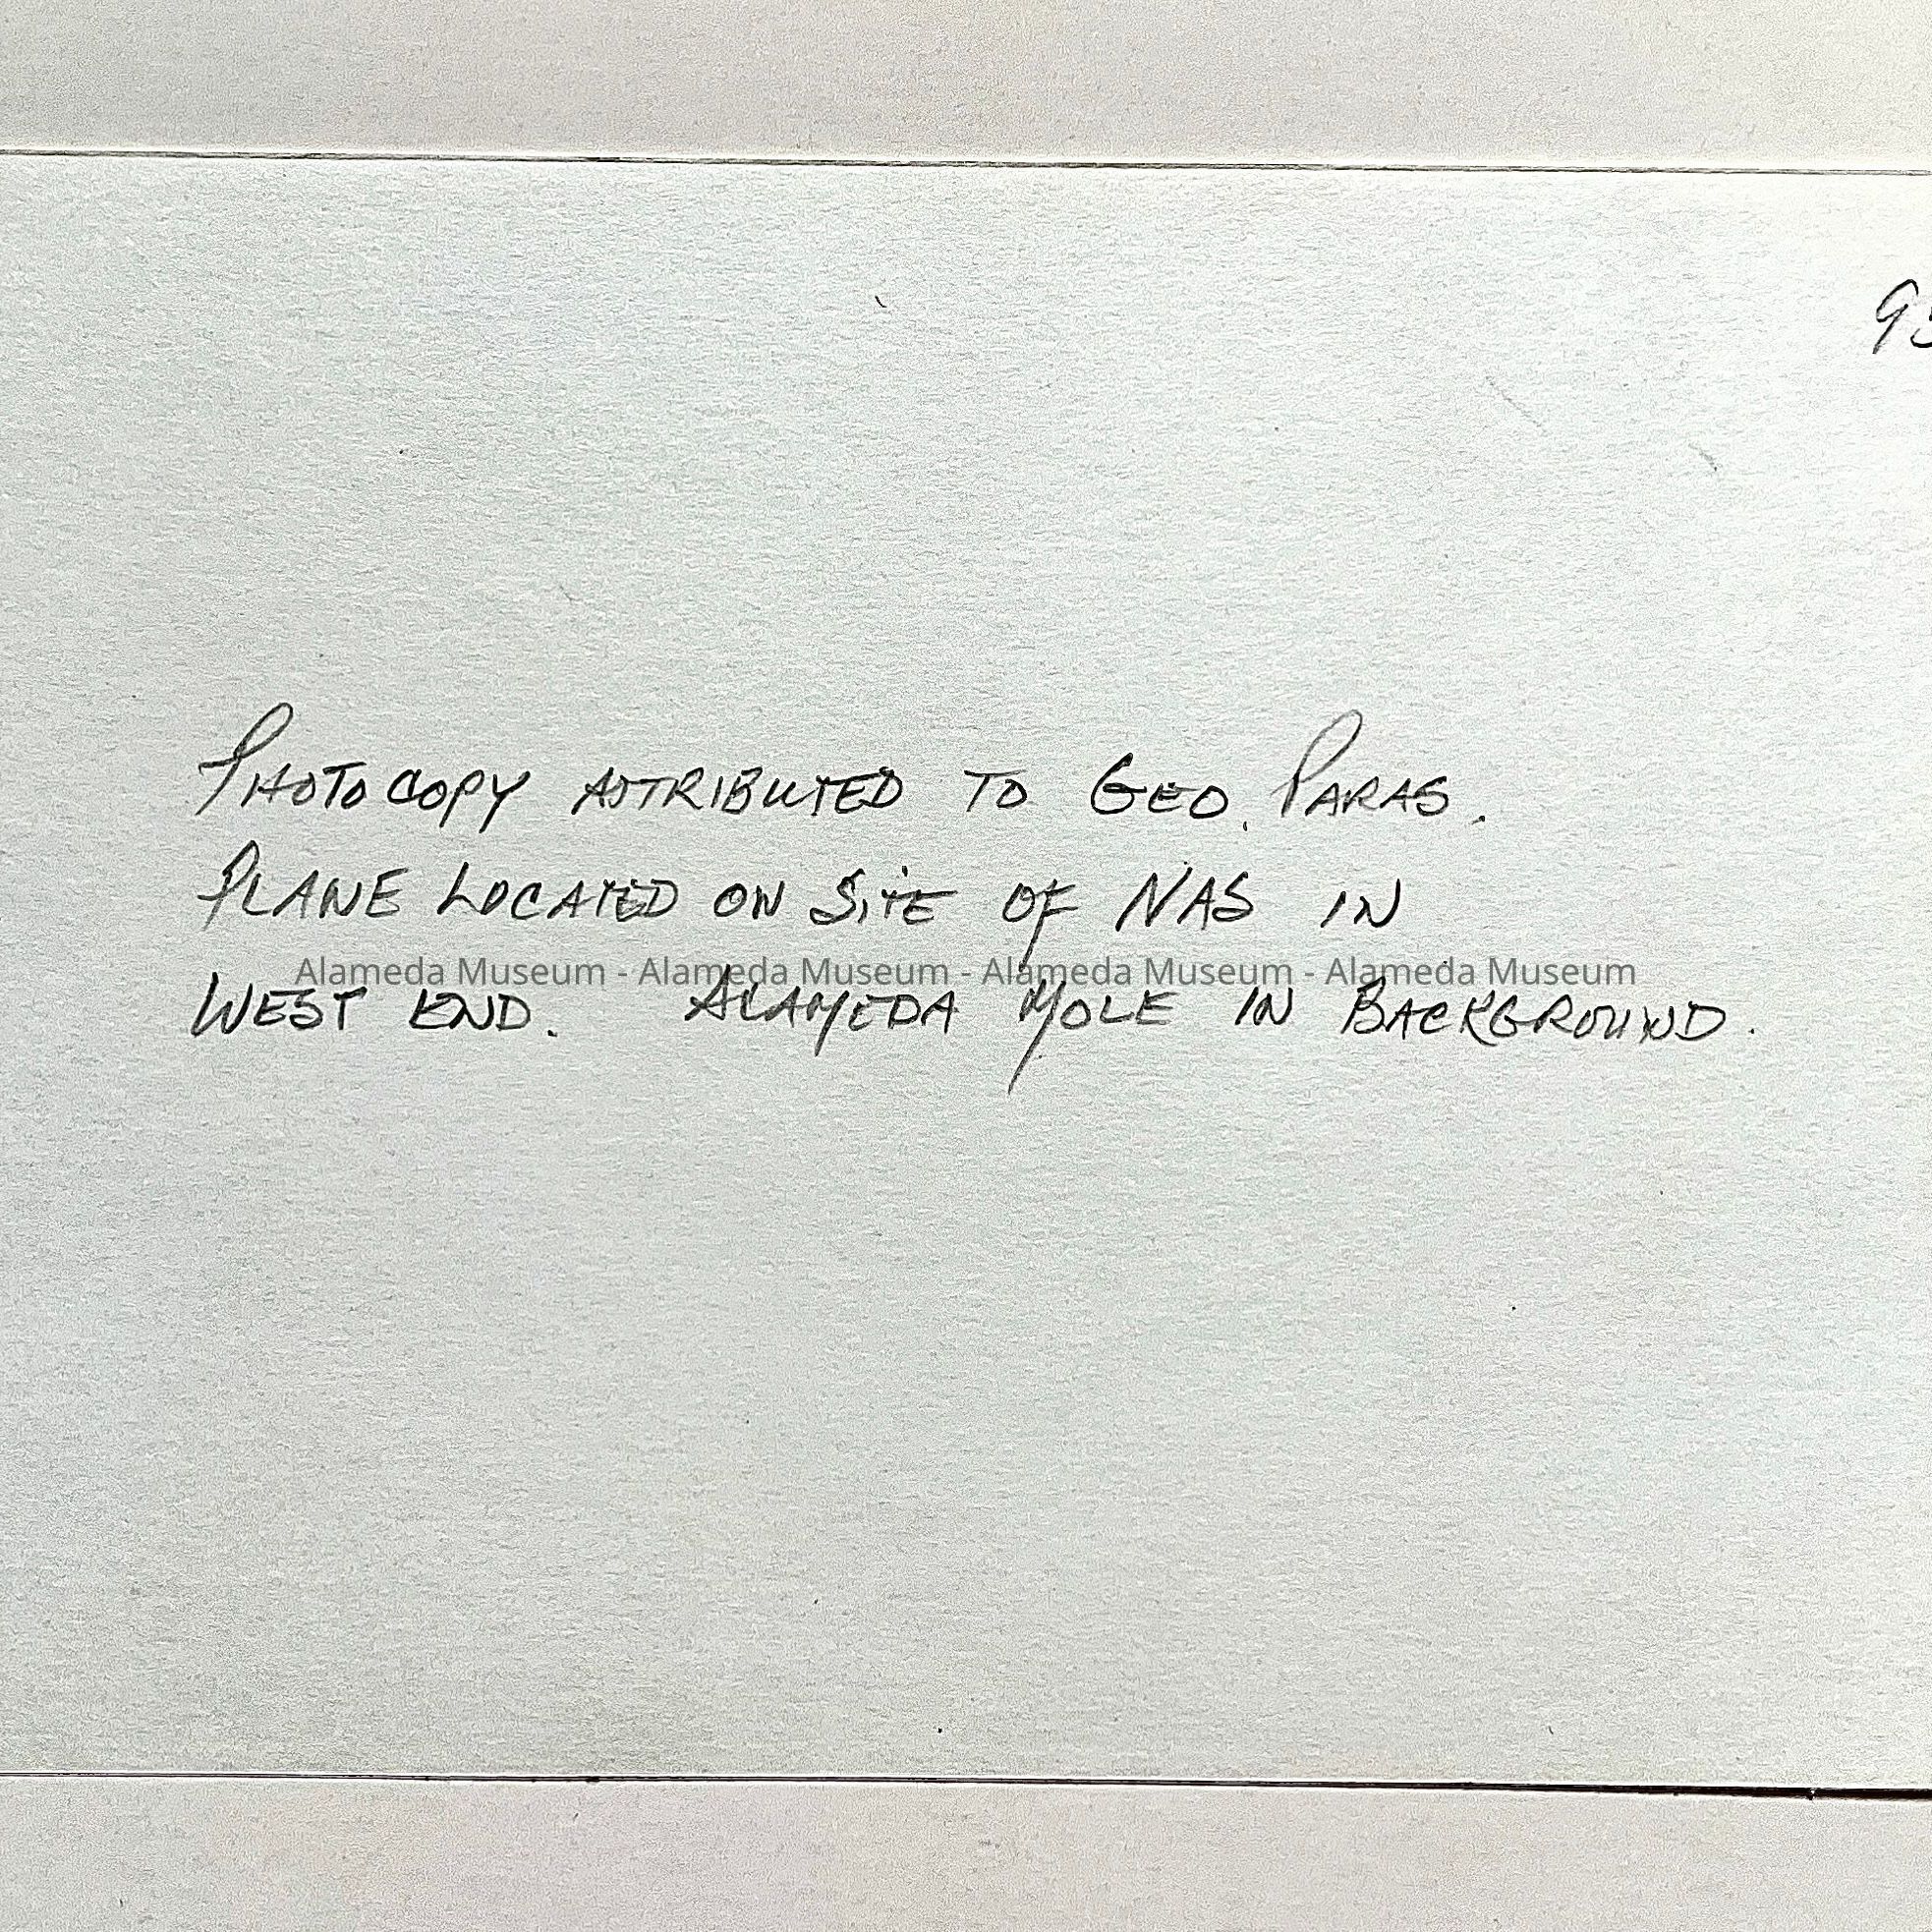 PHOTOCOPY ATTRIBUTED TO GEO. PARAS.
PLANE LOCATED ON SITE OF NAS IN
Alameda Museum - Alameda Museum - Alameda Museum - Alameda Museum
WEST END. ALAMEDA MOLE IN BACKGROUND.